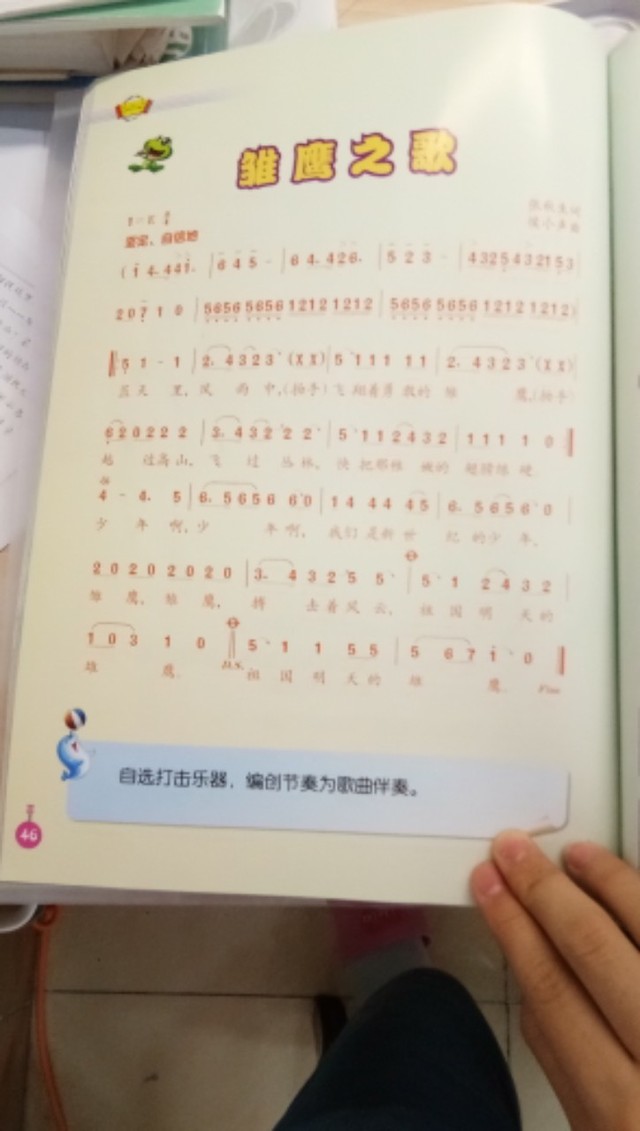 雏鹰之歌
坚定、自信地
6 4 5 -
5 2 3 -
2 0 7 1 0 5656 5656 1212 1212 5656 5656 1212 1212)
5 1 - 1 2. 4 3 2 3 (X X) 5 1 1 1 1 1 2. 4 3 2 3 (X X)
蓝天 里，风 雨 中，(拍手) 飞翔着勇敢的 雏 鹰，(拍手)
6 2 0 2 2 2 2 3. 4 3 2 2 2 5 1 1 2 4 3 2 1 1 1 1 0
越 过高山，飞 过 丛林，快把那稚嫩的翅膀练硬
4 - 4. 5 6. 5 6 5 6 6 0 1 4 4 4 4 5 6. 5 6 5 6 0
少 年 啊，少 年 啊，我们是新世 纪 的少 年，
2 0 2 0 2 0 2 0 3. 4 3 2 5 5 5 1 2 4 3 2
雏 鹰，雏 鹰， 去着风云， 祖 国 明 天的
1 0 3 1 0 5 1 1 5 5 5 6 7 1 0
雄 鹰。 D.S. 祖 国 明 天的 雄 鹰。 Fine
自选打击乐器，编创节奏为歌曲伴奏。
46